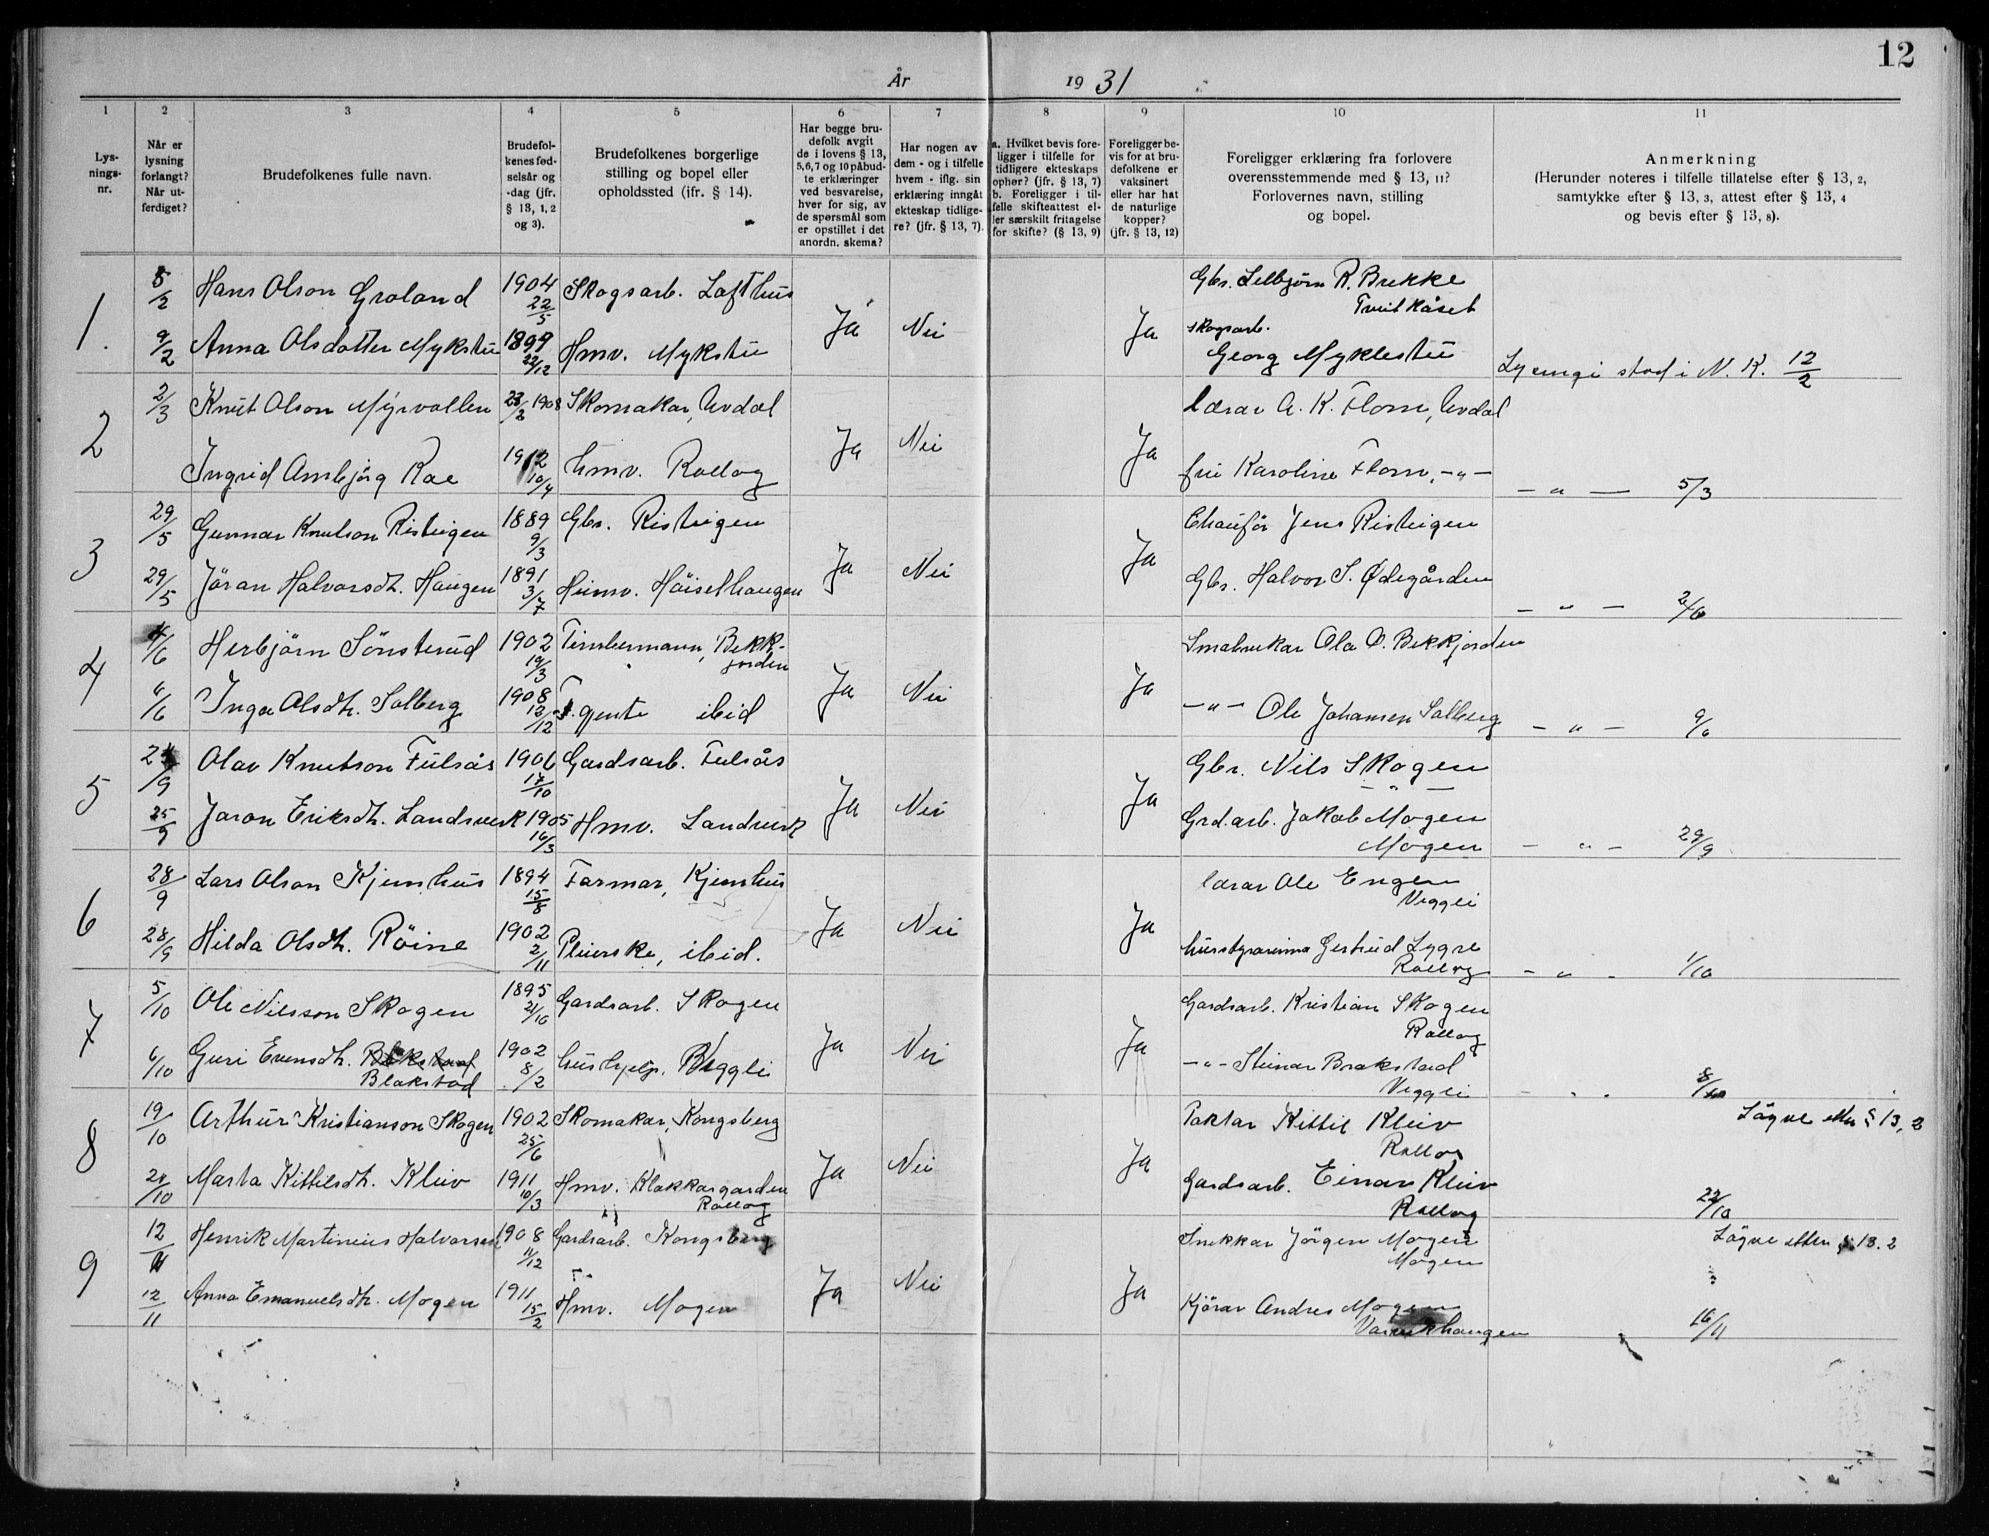 12
År 1931
1 2 3 4 5 6 7 8 9 10 11
Lysningsnr.
Når er lysning forlangt? Når utferdiget?
Brudefolkenes fulle navn.
Brudefolkenes fødselsår og -dag (jfr. § 13, 1, 2 og 3).
Brudefolkenes borgerlige stilling og bopel eller opholdssted (jfr. § 14).
Har begge brudefolk avgit de i lovens § 13, 5,6,7 og 10 påbudte erklæringer ved besvarelse, hver for sig, av de spørsmål som er opstillet i det anordn. skema?
Har nogen av dem - og i tilfelle hvem - iflg. sin erklæring inngåt ekteskap tidligere? (jfr. § 13, 7).
a. Hvilket bevis foreligger i tilfelle for tidligere ekteskaps ophør? (jfr. § 13, 7) b. Foreligger i tilfelle skifteattest eller særskilt fritagelse for skifte? (§ 13, 9)
Foreligger bevis for at brudefolkene er vaksinert eller har hat de naturlige kopper? (jfr. § 13, 12)
Foreligger erklæring fra forlovere overensstemmende med § 13, 11? Forlovernes navn, stilling og bopel.
Anmerkning (Herunder noteres i tilfelle tillatelse efter § 13, 2, samtykke efter § 13, 3, attest efter § 13, 4 og bevis efter § 13, 8).
1. 5/2 Hans Olson Groland 1904 22/5 Skogsarb. Lofthus Ja Nei Ja Gbr. R. Brekke
9/2 Anna Olsdatter Mykstu 1899 22/12 Hmv. Mykstu skogsarb. Georg Myklestu i N. K. 12/2
2 2/3 Knut Olson Myrvollen 23/2 1908 Skomakar, Uvdal Ja Nei Ja lærar A. K. Flom, Uvdal
Ingrid Ambjørg Roe 1912 10/4 hmv. Rollag fru Karoline Flom, -"- - " - 5/3
3 29/5 Gunnar Knutson Risteigen 1889 9/3 Gbr. Risteigen Ja Nei Ja Chaufør Jens Risteigen
29/5 Jöran Halvorsdt. Haugen 1891 3/7 Heimv. Höisethaugen Gbr. Halvor S. Ødegården - " - 2/6
4 4/6 Herbjörn Sönsterud 1902 19/3 Timbermann, Bekkjorden Ja Nei Ja Småbrukar Ola O. Bekkjorden
6/6 Inga Olsdt. Solberg 1908 12/12 T. gjente ibid -"- Ole Johansen Solberg - " - 9/6
5 24/9 Olav Knutson Fulsås 1906 17/10 Gardsarb. Fulsås Ja Nei Ja Gbr. Nils Skogen
- " -
25/9 Jøron Eriksdt. Landsverk 1905 16/3 Hmv. Landsverk Grd.arb. Jakob Mogen
Mogen - " - 29/9
6 28/9 Lars Olson Kjemhus 1894 15/8 Farmar, Kjemhus Ja Nei Ja lærar Ole Engen
Veggli
28/9 Hilda Olsdt. Röine 1902 2/11 Pleierske, ibid. husstyrarinna Gertrud Lygre
Rollag - " - 1/10
7 5/10 Ole Nilsson Skogen 1895 21/10 Gardsarb. Skogen Ja Nei Ja Gardsarb. Kristian Skogen
Rollag
6/10 Guri Evensdt. Blakstad 1902 8/2 hushjelp. Veggli -"- Steinar Brakstad
Veggli - " - 8/10
8 19/10 Arthur Kristianson Skogen 1902 25/6 Skomakar, Kongsberg Ja Nei Ja Paktar Kittil Kleiv
Rollag Lögve etter § 13, 2
20/10 Marta Kittilsdt. Kleiv 1911 10/3 Hmv. Klokkargarden
Rollag Gardsarb. Einar Kleiv
Rollag 22/10
9 12/11 Henrik Martinius Halvorsen 1908 11/12 Gardsarb. Kongsberg Ja Nei Ja Snekkar Jörgen Mogen
Mogen Lögve etter § 13. 2
12/11 Anna Emanuelsdt. Mogen 1911 15/2 Hmv. Mogen Kjörar Andres Mogen
16/11